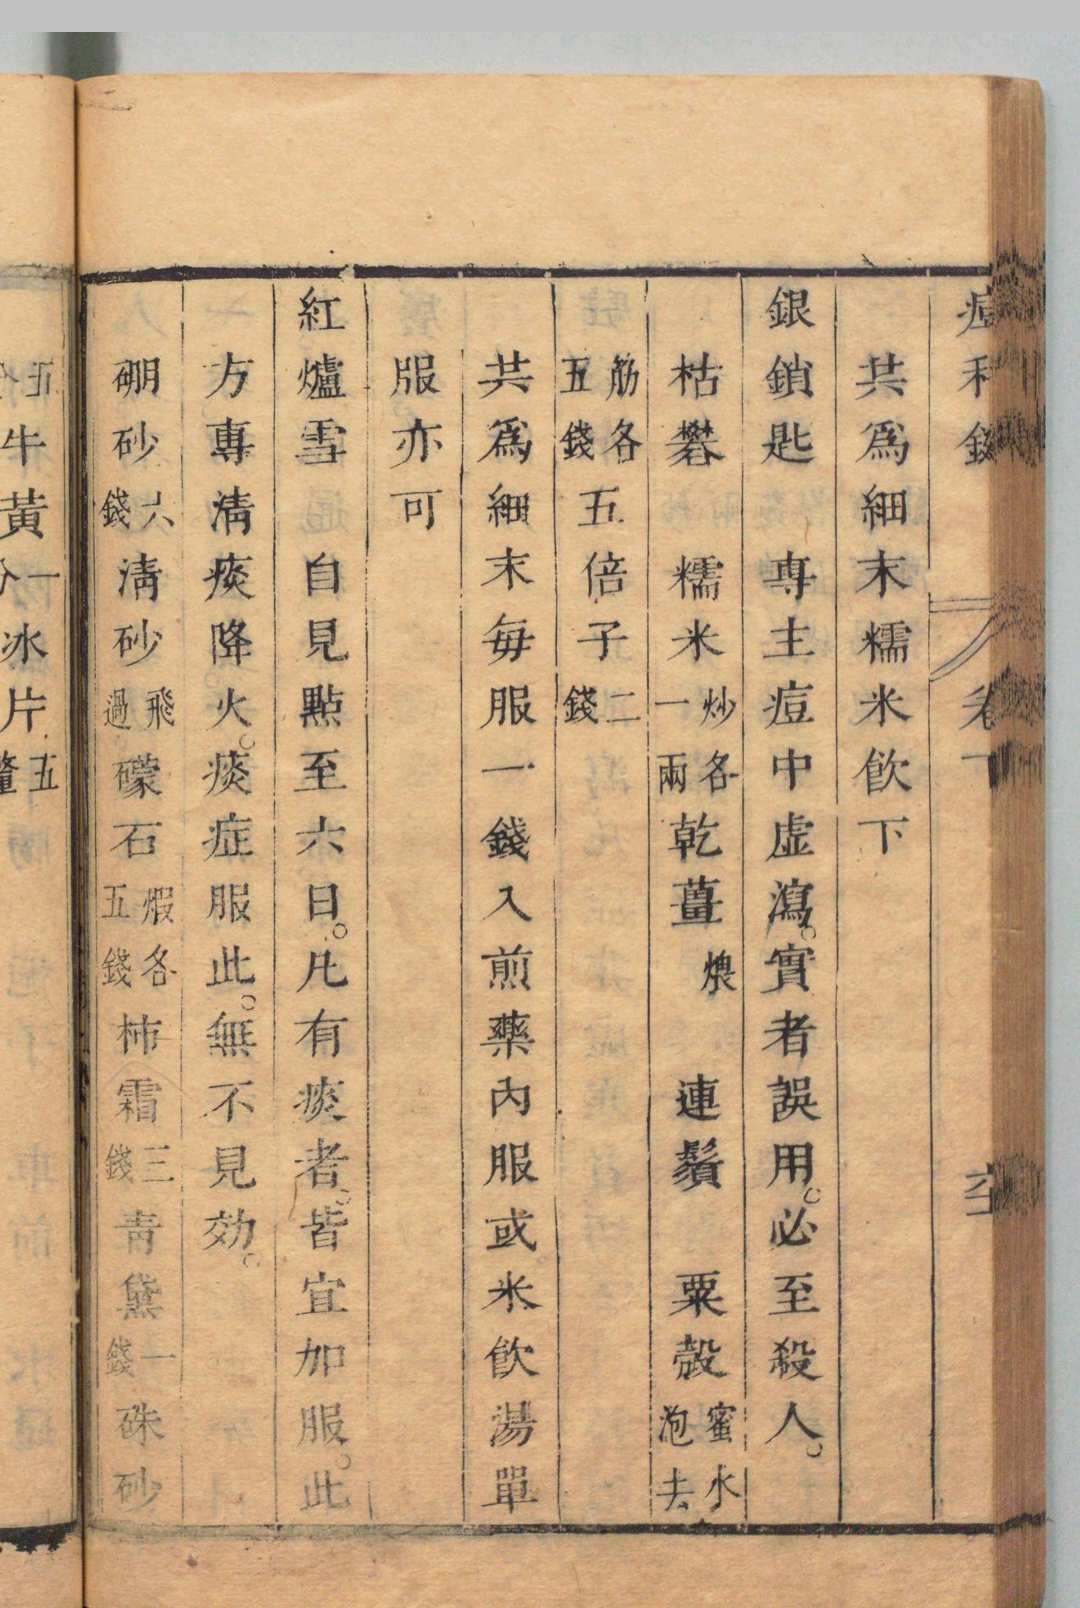 共為細末糯米飲下
銀鎖匙 專主痘中虛瀉。實者誤用。必至殺人。
枯礬 糯米炒各一兩乾薑煨 連鬚 粟殼蜜水泡去
筋各五錢五倍子二錢
共為細末每服一錢入煎藥內服或米飲湯單
服亦可
紅爐雪 自見點至六日。凡有痰者。皆宜加服。此
方專清痰降火。痰症服此。無不見効。
硼砂六錢清砂飛過礞石煅各五錢柿霜三錢青黛一錢硃砂
牛黃一分冰片五釐